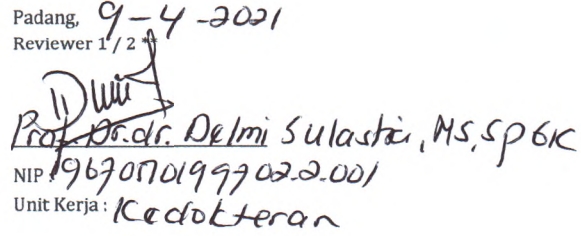 Padang, 9-4-2021
Reviewer 1 / 2 **
Prof. Dr. dr. Delmi Sulastri, MS, SpGK
NIP : 196707101997022001
Unit Kerja : Kedokteran